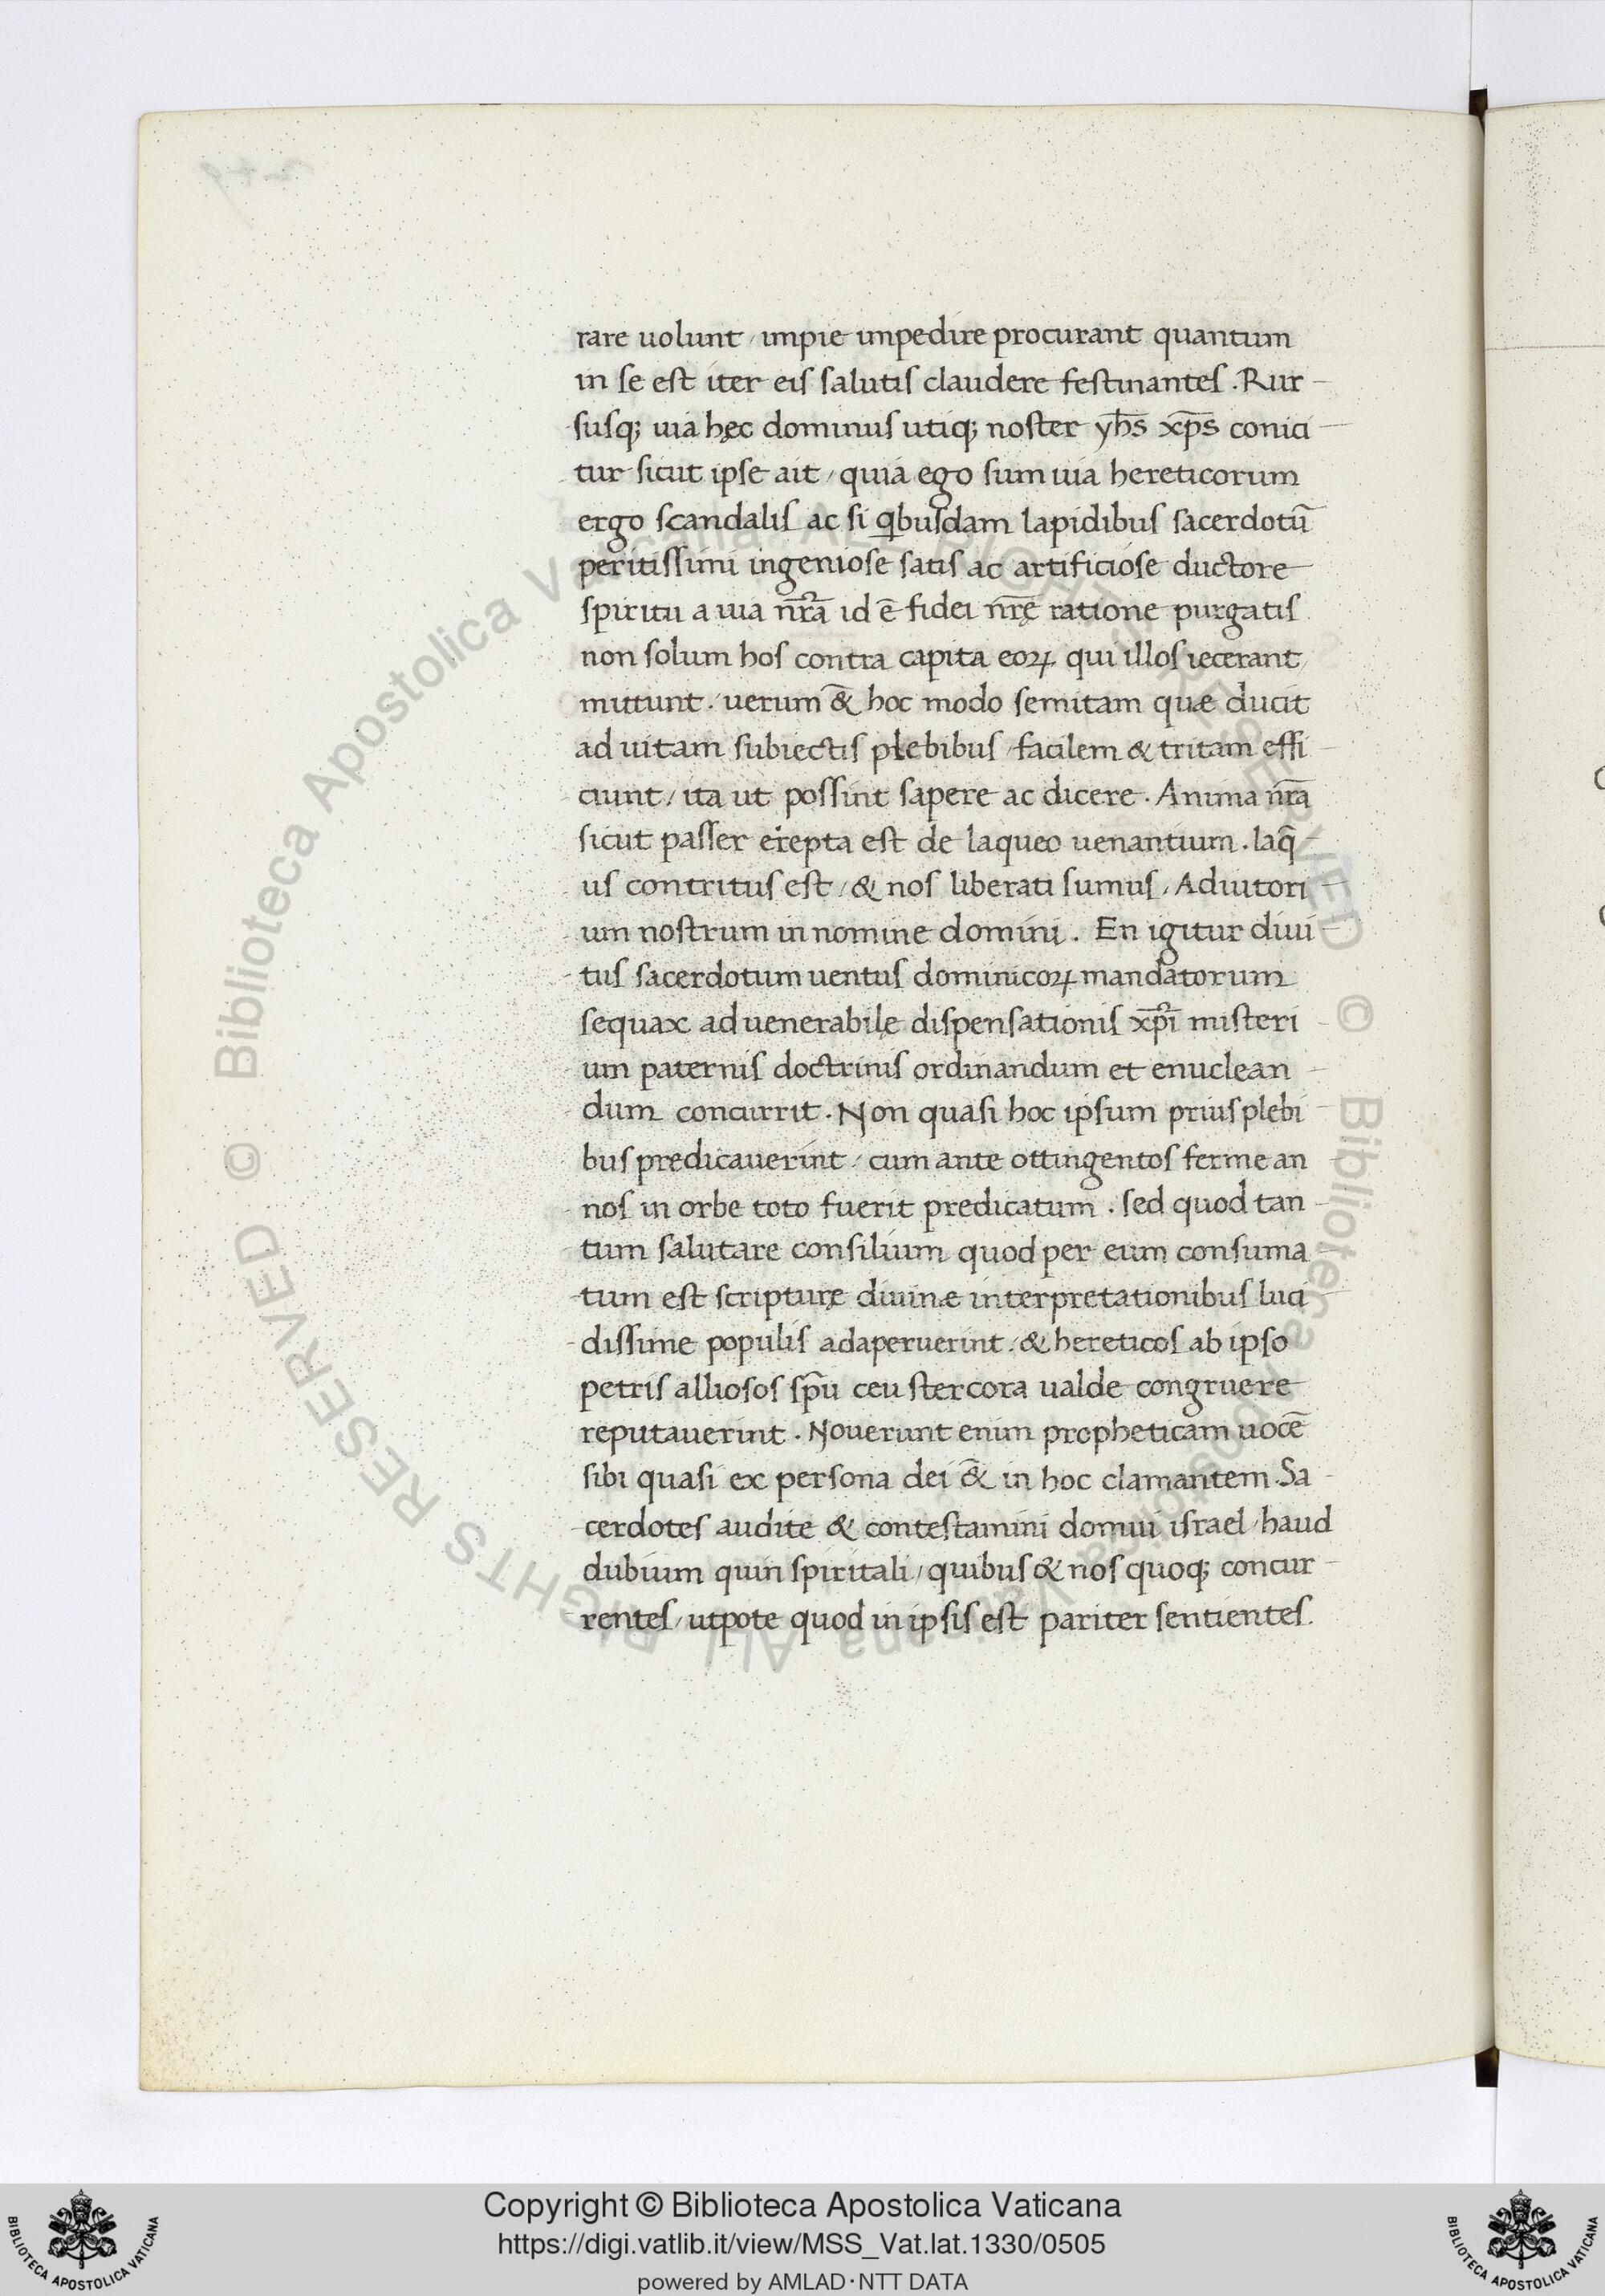 rare uolunt / impie impedire procurant quantum
in se est iter eis salutis claudere festinantes . Rur
susq; uia hęc dominus utiq; noster yhs̄ xp̄s conici
tur sicut ipse ait / quia ego sum uia hereticorum
ergo scandalis ac si qibusdam lapidibus sacerdotū
peritissimi ingeniose satis ac artificiose ductore
spiritu a uia nr̄a id ē fidei nr̄ę ratione purgatis
non solum hos contra capita eoꝝ qui illos iecerant
mittunt . uerum &̄ hoc modo semitam quæ ducit
ad uitam subiectis plebibus / facilem & tritam effi
ciunt / ita ut possint sapere ac dicere . Anima nr̄a
sicut passer erepta est de laqueo uenantium . laq̄
us contritus est / & nos liberati sumus / Adiutori
um nostrum in nomine domini . En igitur diui
tus sacerdotum uentus dominicoꝝ mandatorum
sequax ad uenerabilę dispensationis xp̄i misteri
um paternis doctrinis ordinandum et enuclean
dum concurrit . Non quasi hoc ipsum prius plebi
bus predicauerint / cum ante ottingentos ferme an
nos in orbe toto fuerit predicatum . sed quod tan
tum salutare consilium quod per eum consuma
tum est scripturę diuinæ interpretationibus luci
dissime populis adaperuerint / & hereticos ab ipso
petris alliosos sp̄u ceu stercora ualde congruere
reputauerint . Nouerunt enim propheticam uocē
sibi quasi ex persona dei &̄ in hoc clamantem . Sa
cerdotes audite & contestamini domui israel / haud
dubium quin spiritali / quibus & nos quoq; concur
rentes / utpote quod in ipsis est pariter sentientes .
© Biblioteca Apostolica Vaticana ALL RIGHTS RESERVED © Biblioteca Apostolica Vaticana ALL RIGHTS RESERVED
Copyright © Biblioteca Apostolica Vaticana
https://digi.vatlib.it/view/MSS_Vat.lat.1330/0505
powered by AMLAD·NTT DATA
BIBLIOTECA APOSTOLICA VATICANA
BIBLIOTECA APOSTOLICA VATICANA